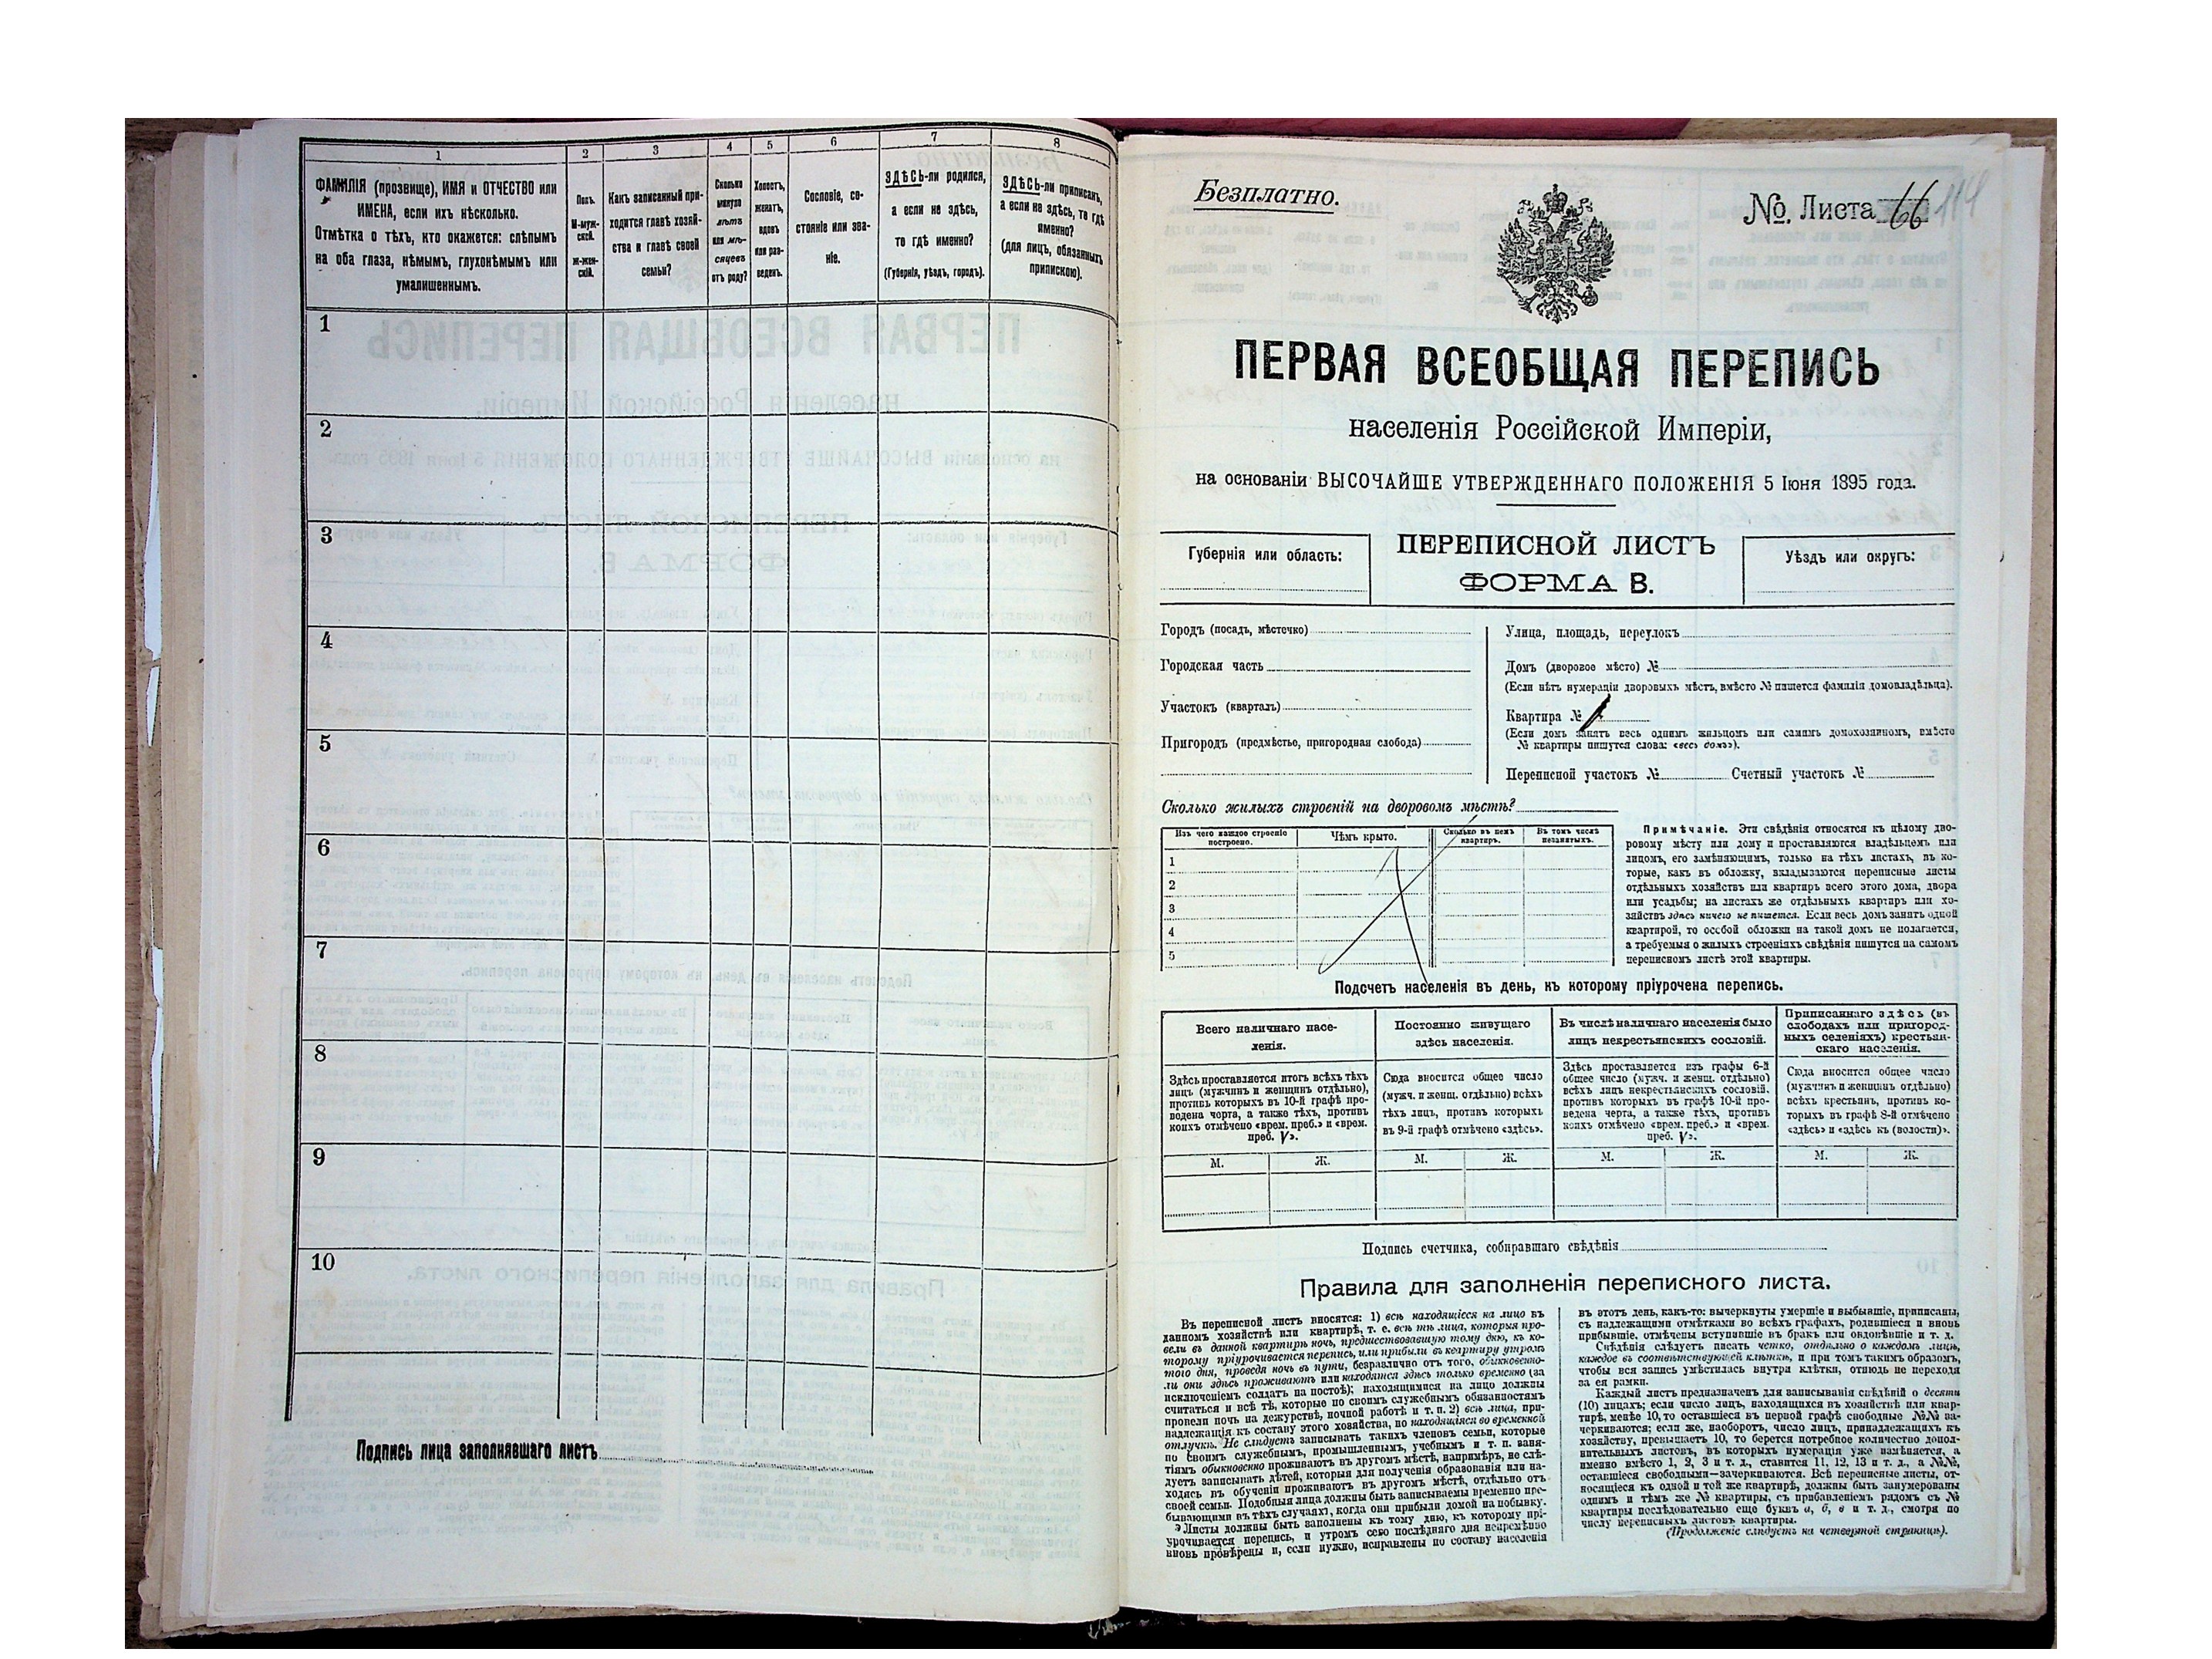 1 2 3 4 5 6 7 8
ФАМИЛІЯ (прозвище), ИМЯ и ОТЧЕСТВО или
ИМЕНА, если ихъ нѣсколько.
Отмѣтка о тѣхъ, кто окажется: слѣпымъ
на оба глаза, нѣмымъ, глухонѣмымъ или
умалишеннымъ.
Полъ.
М-муж-
ской.
Ж-жен-
скій.
Какъ записанный при-
ходится главѣ хозяй-
ства и главѣ своей
семьи?
Сколько
минуло
лѣтъ
или мѣ-
сяцевъ
отъ роду?
Холостъ,
женатъ,
вдовъ
или раз-
веденъ.
Сословіе, со-
стояніе или зва-
ніе.
ЗДѢСЬ-ли родился,
а если не здѣсь,
то гдѣ именно?
(Губернія, уѣздъ, городъ).
ЗДѢСЬ-ли приписанъ,
а если не здѣсь, то гдѣ
именно?
(для лицъ, обязанныхъ
припискою).
1
2
3
4
5
6
7
8
9
10
Подпись лица заполнявшаго листъ
Безплатно.
№. Листа 66 114
ПЕРВАЯ ВСЕОБЩАЯ ПЕРЕПИСЬ
населенія Россійской Имперіи,
на основаніи ВЫСОЧАЙШЕ УТВЕРЖДЕННАГО ПОЛОЖЕНІЯ 5 Іюня 1895 года.
Губернія или область:
ПЕРЕПИСНОЙ ЛИСТЪ
ФОРМА В.
Уѣздъ или округъ:
Городъ (посадъ, мѣстечко)
Городская часть
Участокъ (кварталъ)
Пригородъ (предмѣстье, пригородная слобода)
Улица, площадь, переулокъ
Домъ (дворовое мѣсто) №
(Если нѣтъ нумераціи дворовыхъ мѣстъ, вмѣсто № пишется фамилія домовладѣльца).
Квартира №
(Если домъ занятъ весь однимъ жильцомъ или самимъ домохозяиномъ, вмѣсто
№ квартиры пишутся слова: «весь домъ»).
Переписной участокъ № Счетный участокъ №
Сколько жилыхъ строеній на дворовомъ мѣстѣ?
Изъ чего каждое строеніе
построено.
Чѣмъ крыто.
Сколько въ немъ
квартиръ.
Въ томъ числѣ
незанятыхъ.
1
2
3
4
5
Примѣчаніе. Эти свѣдѣнія относятся къ цѣлому дво-
ровому мѣсту или дому и проставляются владѣльцемъ или
лицомъ, его замѣняющимъ, только на тѣхъ листахъ, въ ко-
торые, какъ въ обложку, вкладываются переписные листы
отдѣльныхъ хозяйствъ или квартиръ всего этого дома, двора
или усадьбы; на листахъ же отдѣльныхъ квартиръ или хо-
зяйствъ здѣсь ничего не пишется. Если весь домъ занятъ одной
квартирой, то особой обложки на такой домъ не полагается,
а требуемыя о жилыхъ строеніяхъ свѣдѣнія пишутся на самомъ
переписномъ листѣ этой квартиры.
Подсчетъ населенія въ день, къ которому пріурочена перепись.
Всего наличнаго насе-
ленія.
Постоянно живущаго
здѣсь населенія.
Въ числѣ наличнаго населенія было
лицъ некрестьянскихъ сословій.
Приписаннаго здѣсь (въ
слободахъ или пригород-
ныхъ селеніяхъ) крестьян-
скаго населенія.
Здѣсь проставляется итогъ всѣхъ тѣхъ
лицъ (мужчинъ и женщинъ отдѣльно),
противъ которыхъ въ 10-й графѣ про-
ведена черта, а также тѣхъ, противъ
коихъ отмѣчено «врем. преб.» и «врем.
преб. V».
Сюда вносится общее число
(мужч. и женщ. отдѣльно) всѣхъ
тѣхъ лицъ, противъ которыхъ
въ 9-й графѣ отмѣчено «здѣсь».
Здѣсь проставляется изъ графы 6-й
общее число (мужч. и женщ. отдѣльно)
всѣхъ лицъ некрестьянскихъ сословій,
противъ которыхъ въ графѣ 10-й про-
ведена черта, а также тѣхъ, противъ
коихъ отмѣчено «врем. преб.» и «врем.
преб. V».
Сюда вносится общее число
(мужчинъ и женщинъ отдѣльно)
всѣхъ крестьянъ, противъ ко-
торыхъ въ графѣ 8-й отмѣчено
«здѣсь» и «здѣсь къ (волости)».
М. Ж. М. Ж. М. Ж. М. Ж.
Подпись счетчика, собиравшаго свѣдѣнія
Правила для заполненія переписного листа.
Въ переписной листъ вносятся: 1) всѣ находящіеся на лицо въ
данномъ хозяйствѣ или квартирѣ, т. е. всѣ тѣ лица, которыя про-
вели въ данной квартирѣ ночь, предшествовавшую тому дню, къ ко-
торому пріурочивается перепись, или прибыли въ квартиру утромъ
того дня, проведя ночь въ пути, безразлично отъ того, обыкновенно-
ли они здѣсь проживаютъ или находятся здѣсь только временно (за
исключеніемъ солдатъ на постоѣ); находящимися на лицо должны
считаться и всѣ тѣ, которые по своимъ служебнымъ обязанностямъ
провели ночь на дежурствѣ, ночной работѣ и т. п. 2) всѣ лица, при-
надлежащія къ составу этого хозяйства, но находящіяся во временной
отлучкѣ. Не слѣдуетъ записывать такихъ членовъ семьи, которые
по своимъ служебнымъ, промышленнымъ, учебнымъ и т. п. заня-
тіямъ обыкновенно проживаютъ въ другомъ мѣстѣ, напримѣръ, не слѣ-
дуетъ записывать дѣтей, которыя для полученія образованія или на-
ходясь въ обученіи проживаютъ въ другомъ мѣстѣ, отдѣльно отъ
своей семьи. Подобныя лица должны быть записываемы временно пре-
бывающими въ тѣхъ случаяхъ, когда они прибыли домой на побывку.
Листы должны быть заполнены къ тому дню, къ которому прі-
урочивается перепись, и утромъ сего послѣдняго дня непремѣнно
вновь провѣрены и, если нужно, исправлены по составу населенія
въ этотъ день, какъ-то: вычеркнуты умершіе и выбывшіе, приписаны,
съ надлежащими отмѣтками во всѣхъ графахъ, родившіеся и вновь
прибывшіе, отмѣчены вступившіе въ бракъ или овдовѣвшіе и т. д.
Свѣдѣнія слѣдуетъ писать четко, отдѣльно о каждомъ лицѣ,
каждое въ соотвѣтствующей клѣткѣ, и при томъ такимъ образомъ,
чтобы вся запись умѣстилась внутри клѣтки, отнюдь не переходя
за ея рамки.
Каждый листъ предназначенъ для записыванія свѣдѣній о десяти
(10) лицахъ; если число лицъ, находящихся въ хозяйствѣ или квар-
тирѣ, менѣе 10, то оставшіеся въ первой графѣ свободные №№ за-
черкиваются; если же, наоборотъ, число лицъ, принадлежащихъ къ
хозяйству, превышаетъ 10, то берется потребное количество допол-
нительныхъ листовъ, въ которыхъ нумерація уже измѣняется, а
именно вмѣсто 1, 2, 3 и т. д., ставится 11, 12, 13 и т. д., а №№,
оставшіеся свободными—зачеркиваются. Всѣ переписные листы, от-
носящіеся къ одной и той же квартирѣ, должны быть занумерованы
однимъ и тѣмъ же № квартиры, съ прибавленіемъ рядомъ съ №
квартиры послѣдовательно еще буквъ а, б, в и т. д., смотря по
числу переписныхъ листовъ квартиры.
(Продолженіе слѣдуетъ на четвертой страницѣ).